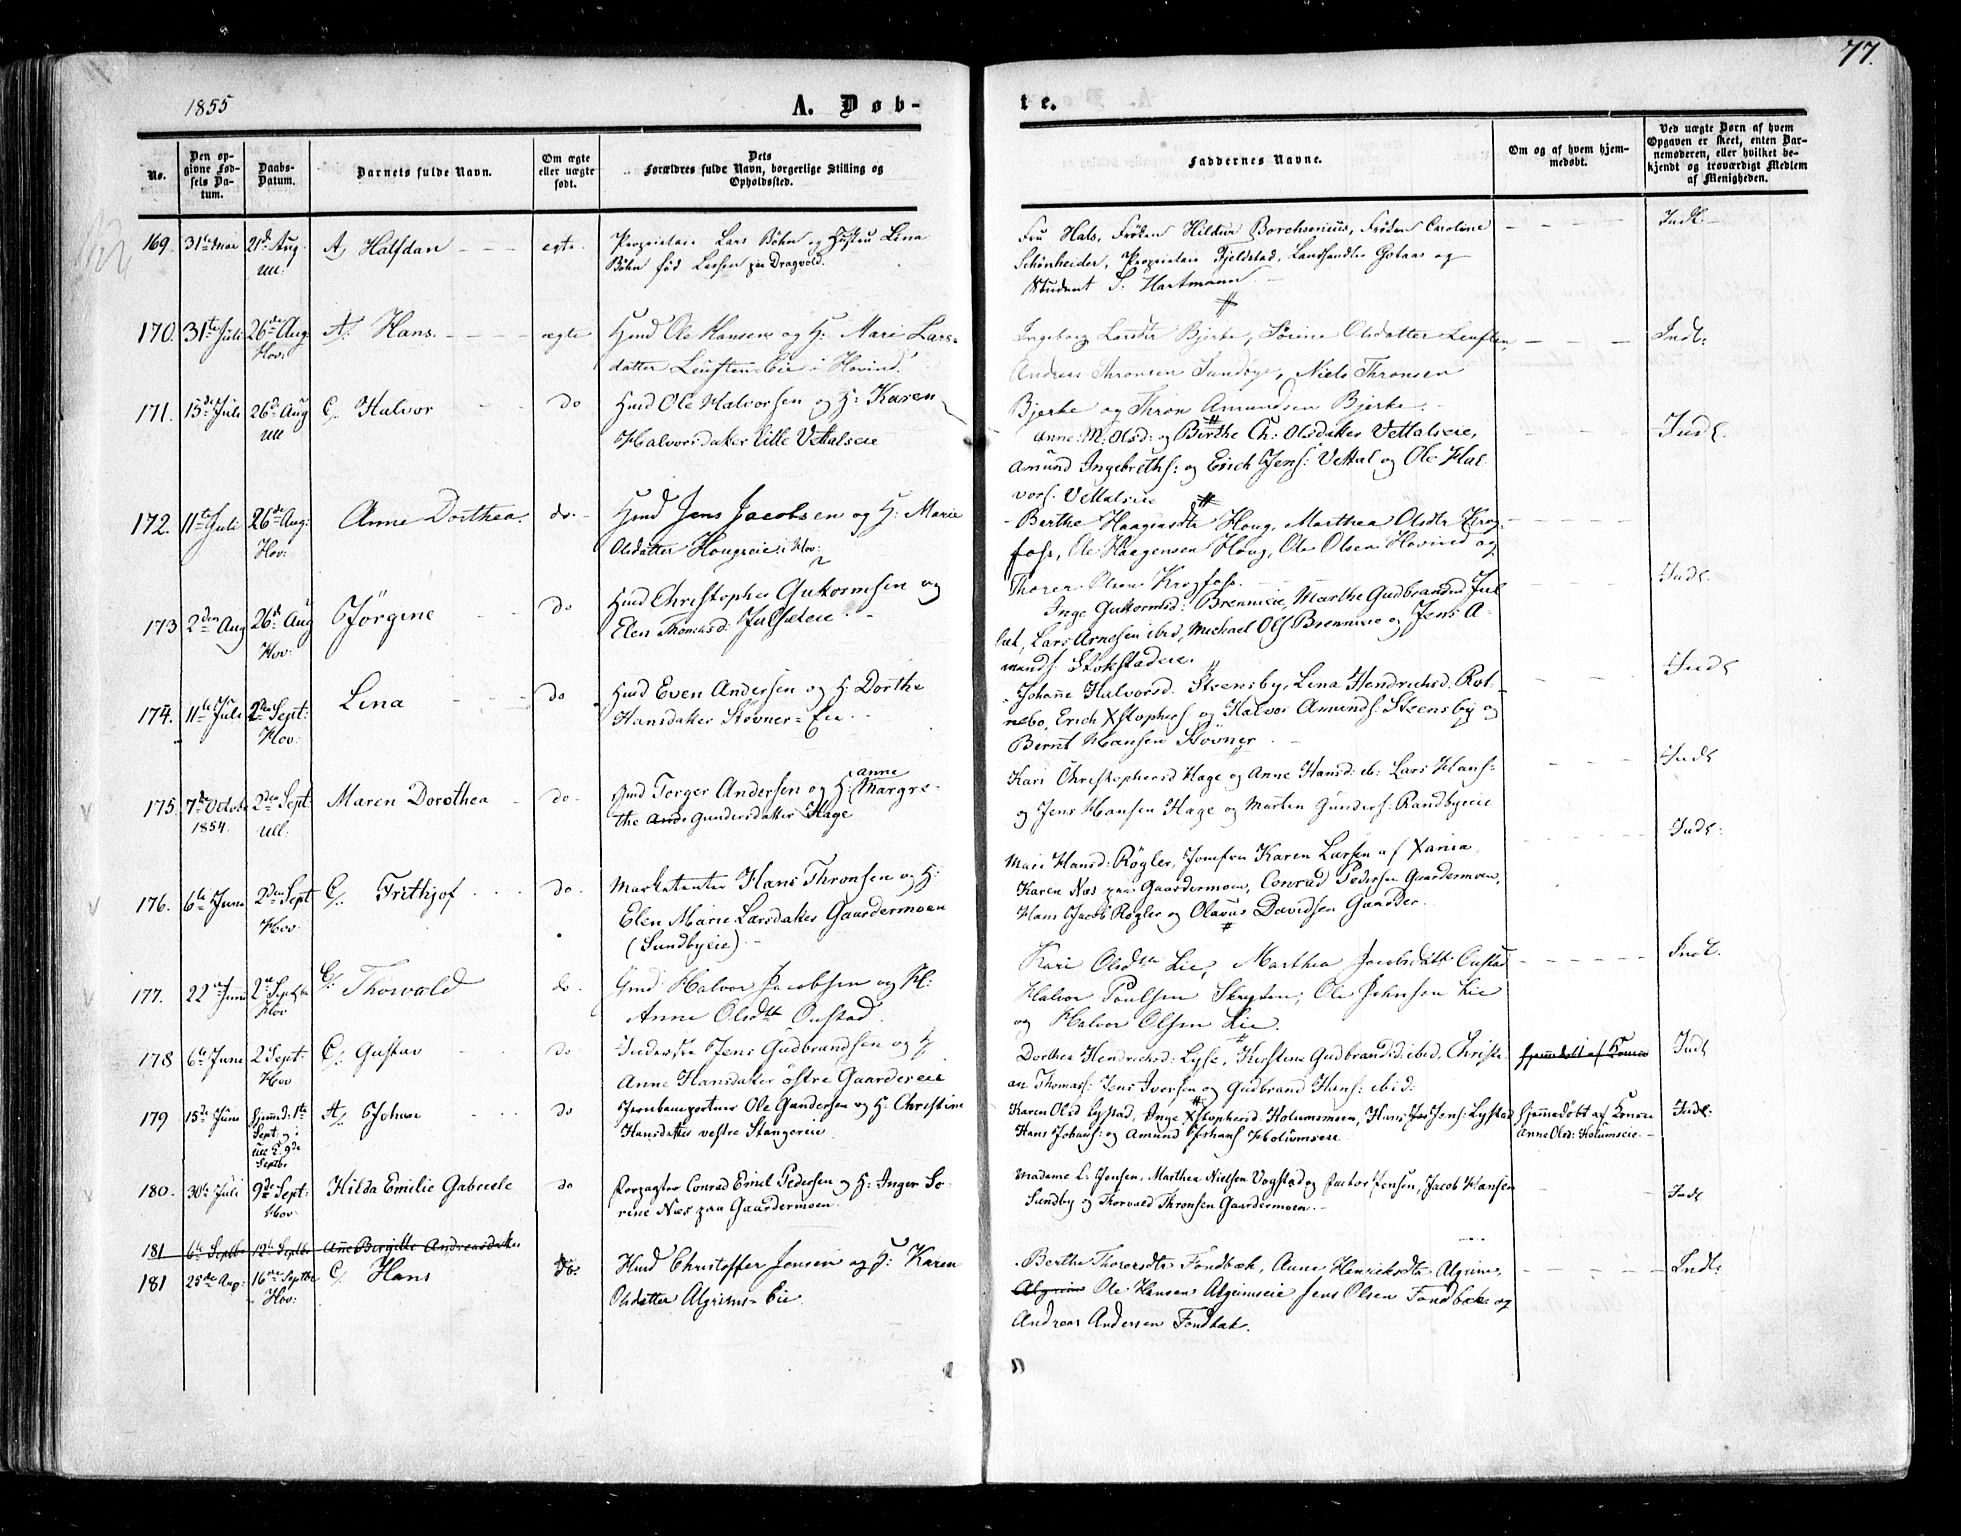 77.
1855
A. Døb-
te.
No.
Den op-
givne Fød-
sels Da-
tum.
Daabs-
Datum.
Barnets fulde Navn.
Om ægte
eller uægte
født.
Dets
Forældres fulde Navn, borgerlige Stilling og
Opholdssted.
Faddernes Navne.
Om og af hvem hjem-
medøbt.
Ved uægte Børn af hvem
Opgaven er skeet, enten Bar-
nemoderen, eller hvilket be-
kjendt og troværdigt Medlem
af Menigheden.
169. 31te Mai 21de Aug. A/ Halfdan egte
Ull.
Proprietair Lars Bøhn og Hustru Lina
Bøhn fød Larsen paa Dragvold.
Fru Hals, Frøken Hildur Borchsenius, Frøken Caroline
Schönheider, Proprietair Fjeldstad, Landhandler Gotaas og
Student S. Hartmann
Indl.
170. 31te Juli 26de Aug A/. Hans. ægte
Hov:
Hmd Ole Hansen og H: Mari Lars-
datter Lenften-Eie i Hovind.
Ingeborg Larsdtr Bjerke, Sørine Olsdatter Lenften,
Andreas Thronsen Sundbye, Niels Thronsen
Bjerke og Thron Amundsen Bjerke.
Indl:
171. 15de Juli 26de Aug C/. Halvor do
Ull
Hmd Ole Halvorsen og H: Karen
Halvorsdatter Lille Vettalseie
Anne M: Olsd: og Birthe Ch: Olsdatter Vettalseie,
Amund Ingebreths: og Erich Jens: Vettal og Ole Hal
vors. Vettalseie
Indl.
172. 11te Juli 26de Aug: Anne Dorthea. do.
Hov:
Hmd Jens Jacobsen og H: Marie
Olsdatter Hougseie i Hov:
Berthe Haagensdtr Houg, Marthea Olsdtr Krog-
foss, Ole Haagensen Houg, Ole Olsen Hovind og
Thorer Olsen Krogfoss.
Indl.
173 2den Aug 26de Aug Jørgine do
Hov:
Hmd Christopher Guttormsen og
Elen Thomasd: Julsæteie
Inge Guttormsd: Brennieie, Marthe Gudbrandsd Jul
sæt, Lars Arnesen ibid, Michael Ols Brennieie og Jens A-
munds Stokstadeie
Indl
174. 11te Juli 2den Sept: Lina do
Hov:
Hmd Even Andersen og H: Dorthe
Hansdatter Støvner-Eie.
Johane Halvorsd. Steensby, Lina Hendrichsd. Rot-
nebo, Erich Xstophers og Halvor Amunds: Steensby og
Bernt Hansen Støvner
Indl
175. 7de Octob: 2den Sept: Maren Dorothea do.
1854. Ull.
Gmd Torger Andersen og H: Anne Margre-
the Gundersdatter Hage
Kari Christophersd Hage og Anne Hansd: ib: Lars Hans:
og Jens Hansen Hage og Morten Gunders: Randbyeie
Indl:
176. 6te June 2den Sept C/. Frithjof do.
Hov:
Marketenter Hans Thronsen og H:
Elen Marie Larsdatter Gaardermoen
(Sundbyeie)
Mari Hansd: Røgler, Jomfru Karen Larsen af Xania,
Karen Næs paa Gaardermoen, Conrad Pedersen Gaardermoen,
Hans Jacob Røgler og Olavus Davidsen Gaarder.
Indl.
177. 22de Juni 2den Septbr C/. Thorvald do.
Hov
Gmd Halvor Jacobsen og H:
Anne Olsdtr Onstad.
Kari Olsdtr Lie, Marthea Jacobsdatt. Onstad
Halvor Poulsen Skrysten, Ole Johnsen Lie
og Halvor Olsen Lie.
178 6te June 2 Sept: C/. Gustav do
Hov
Inderstre Jens Gudbrandsen og H:
Anne Hansdatter østre Gaardereie
Dorthea Hendrichsd: Lyse, Kirstine Gudbrandsd: ibid. Christi-
an Thomass: Jens Iversen og Gudbrand Hans: ibid:
hjemmedøbt af Konen
Indl
179 15de June Hjemd: 1te A/. Johan do
Sept. og i
Ull K. 9de
Septbr
Jernbaneportner Ole Gundersen og H: Christine
Hansdatter vestre Stangereie
Karen Olsd Lystad, Inge Xstophersd: Holumsmoen, Hans Jensen: Lystad
Hans Johans: og Amund Johans Holumseie
hjemmedøbt af Konen
Anne Olsd: Holumseie.
Indl:
180. 30te Juli 9de Sept: Hilda Emilie Gabriele do
Hov
Forpagter Conrad Emil Pedersen og H: Inger So-
rine Næs paa Gaardermoen
Madame L. Jensen, Marthea Nielsen Vogstad og Factor Jensen, Jacob Hansen
Sundby og Thorvald Thronsen Gaardermoen.
Indl
181 6te Septbr 12te Septbr Anne Birgitte Andreasdatter
181 25de Aug: 16de Septbr C/. Hans do.
Hov:
Hmd Christoffer Jensen og H: Karen
Olsdatter Algrims-Eie
Berthe Thorersdtr Fondbæk, Anne Henriksdtr Algrim,
Algrim Ole Hansen Algrimseie Jens Olsen Fondbæk og
Andreas Andersen Fondbæk.
Indl: